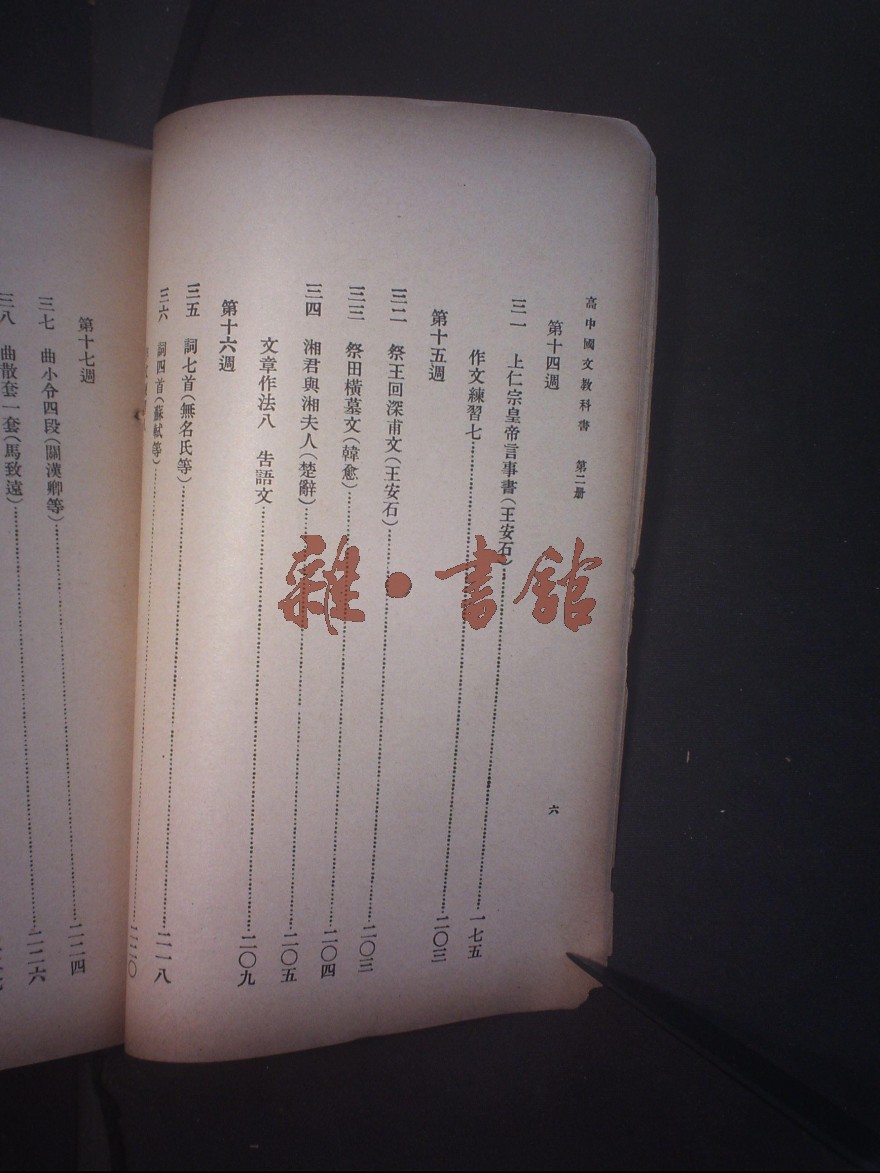 高中國文教科書 第二册
六
第十四週
三一 上仁宗皇帝言事書(王安石)……一七五
作文練習七……二〇三
第十五週
三二 祭王回深甫文(王安石)……二〇三
三三 祭田橫墓文(韓愈)……二〇四
三四 湘君與湘夫人(楚辭)……二〇五
文章作法八 告語文……二〇九
第十六週
三五 詞七首(無名氏等)……二一八
三六 詞四首(蘇軾等)……二二〇
第十七週
三七 曲小令四段(關漢卿等)……二二四
三八 曲散套一套(馬致遠)……二二六
雜·書館